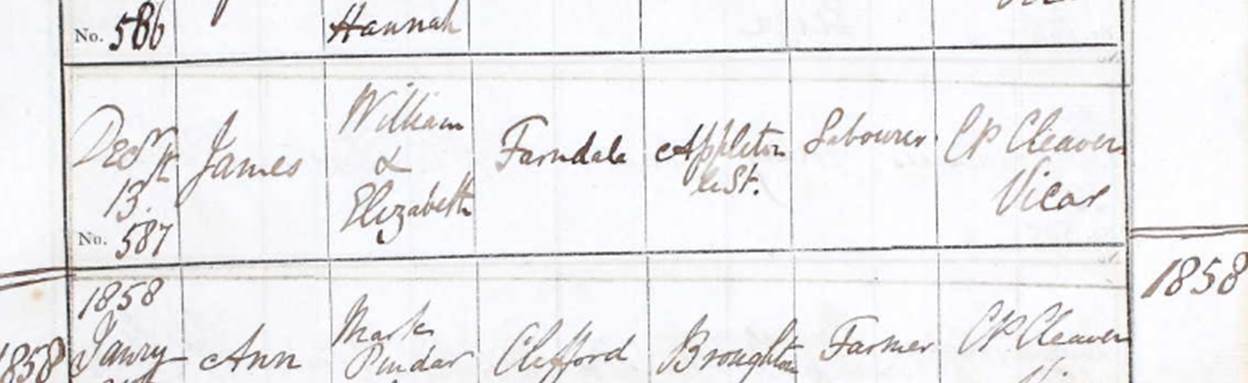 No. 586
Hannah
Decr
13th
No. 587
James
William
&
Elizabeth
Farndale
Appleton
le St.
Labourer
CP Cleaver
Vicar
1858
Janry
Ann
Mark
Pindar
Clifford
Broughton
Farmer
CP Cleaver
1858
1858